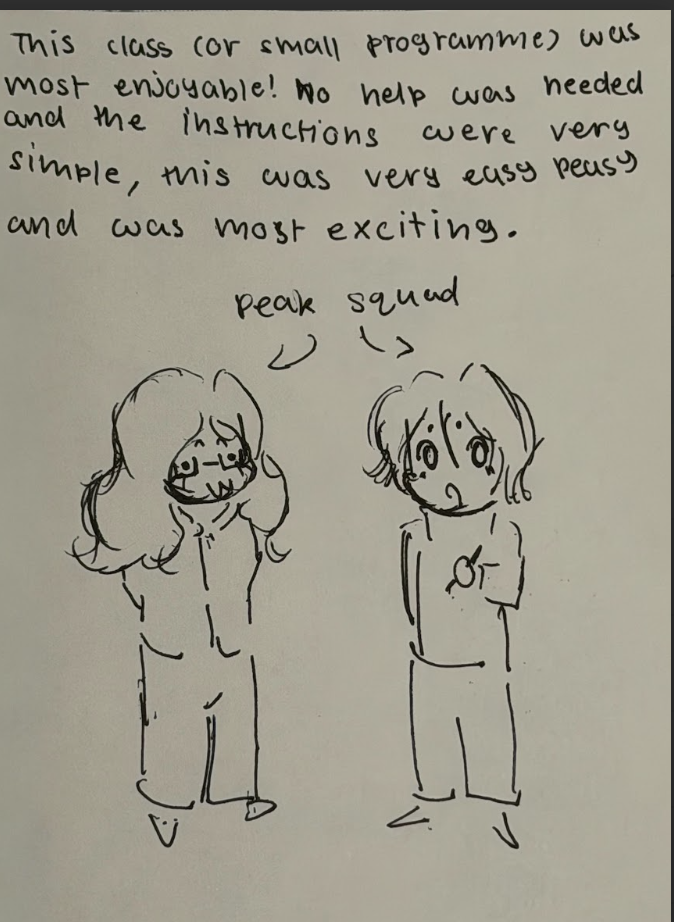 This class (or small programme) was
most enjoyable! No help was needed
and the instructions were very
simple, this was very easy peasy
and was most exciting.
peak squad